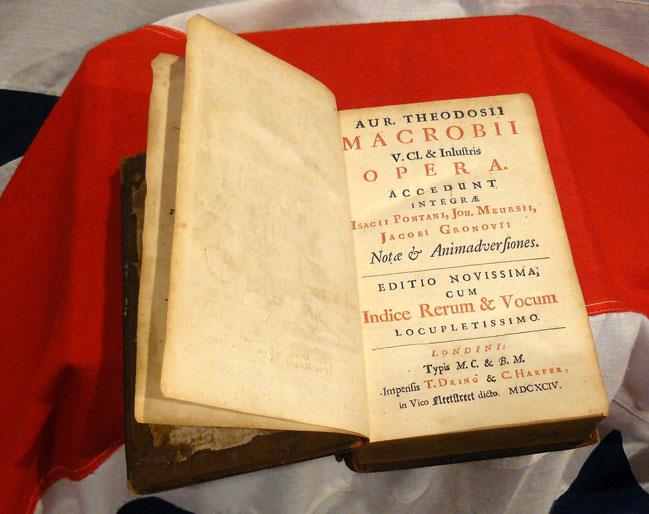 AUR. THEODOSII
MACROBII
V. Cl. & Inlustris
OPERA.
ACCEDUNT
INTEGRÆ
ISACII PONTANI, JOH. MEURSII,
JACOBI GRONOVII
Notæ & Animadversiones.
EDITIO NOVISSIMA,
CUM
Indice Rerum & Vocum
LOCUPLETISSIMO.
LONDINI:
Typis M. C. & B. M.
Impensis T. DRING & C. HARPER,
in Vico Fleetstreet dicto. MDCXCIV.